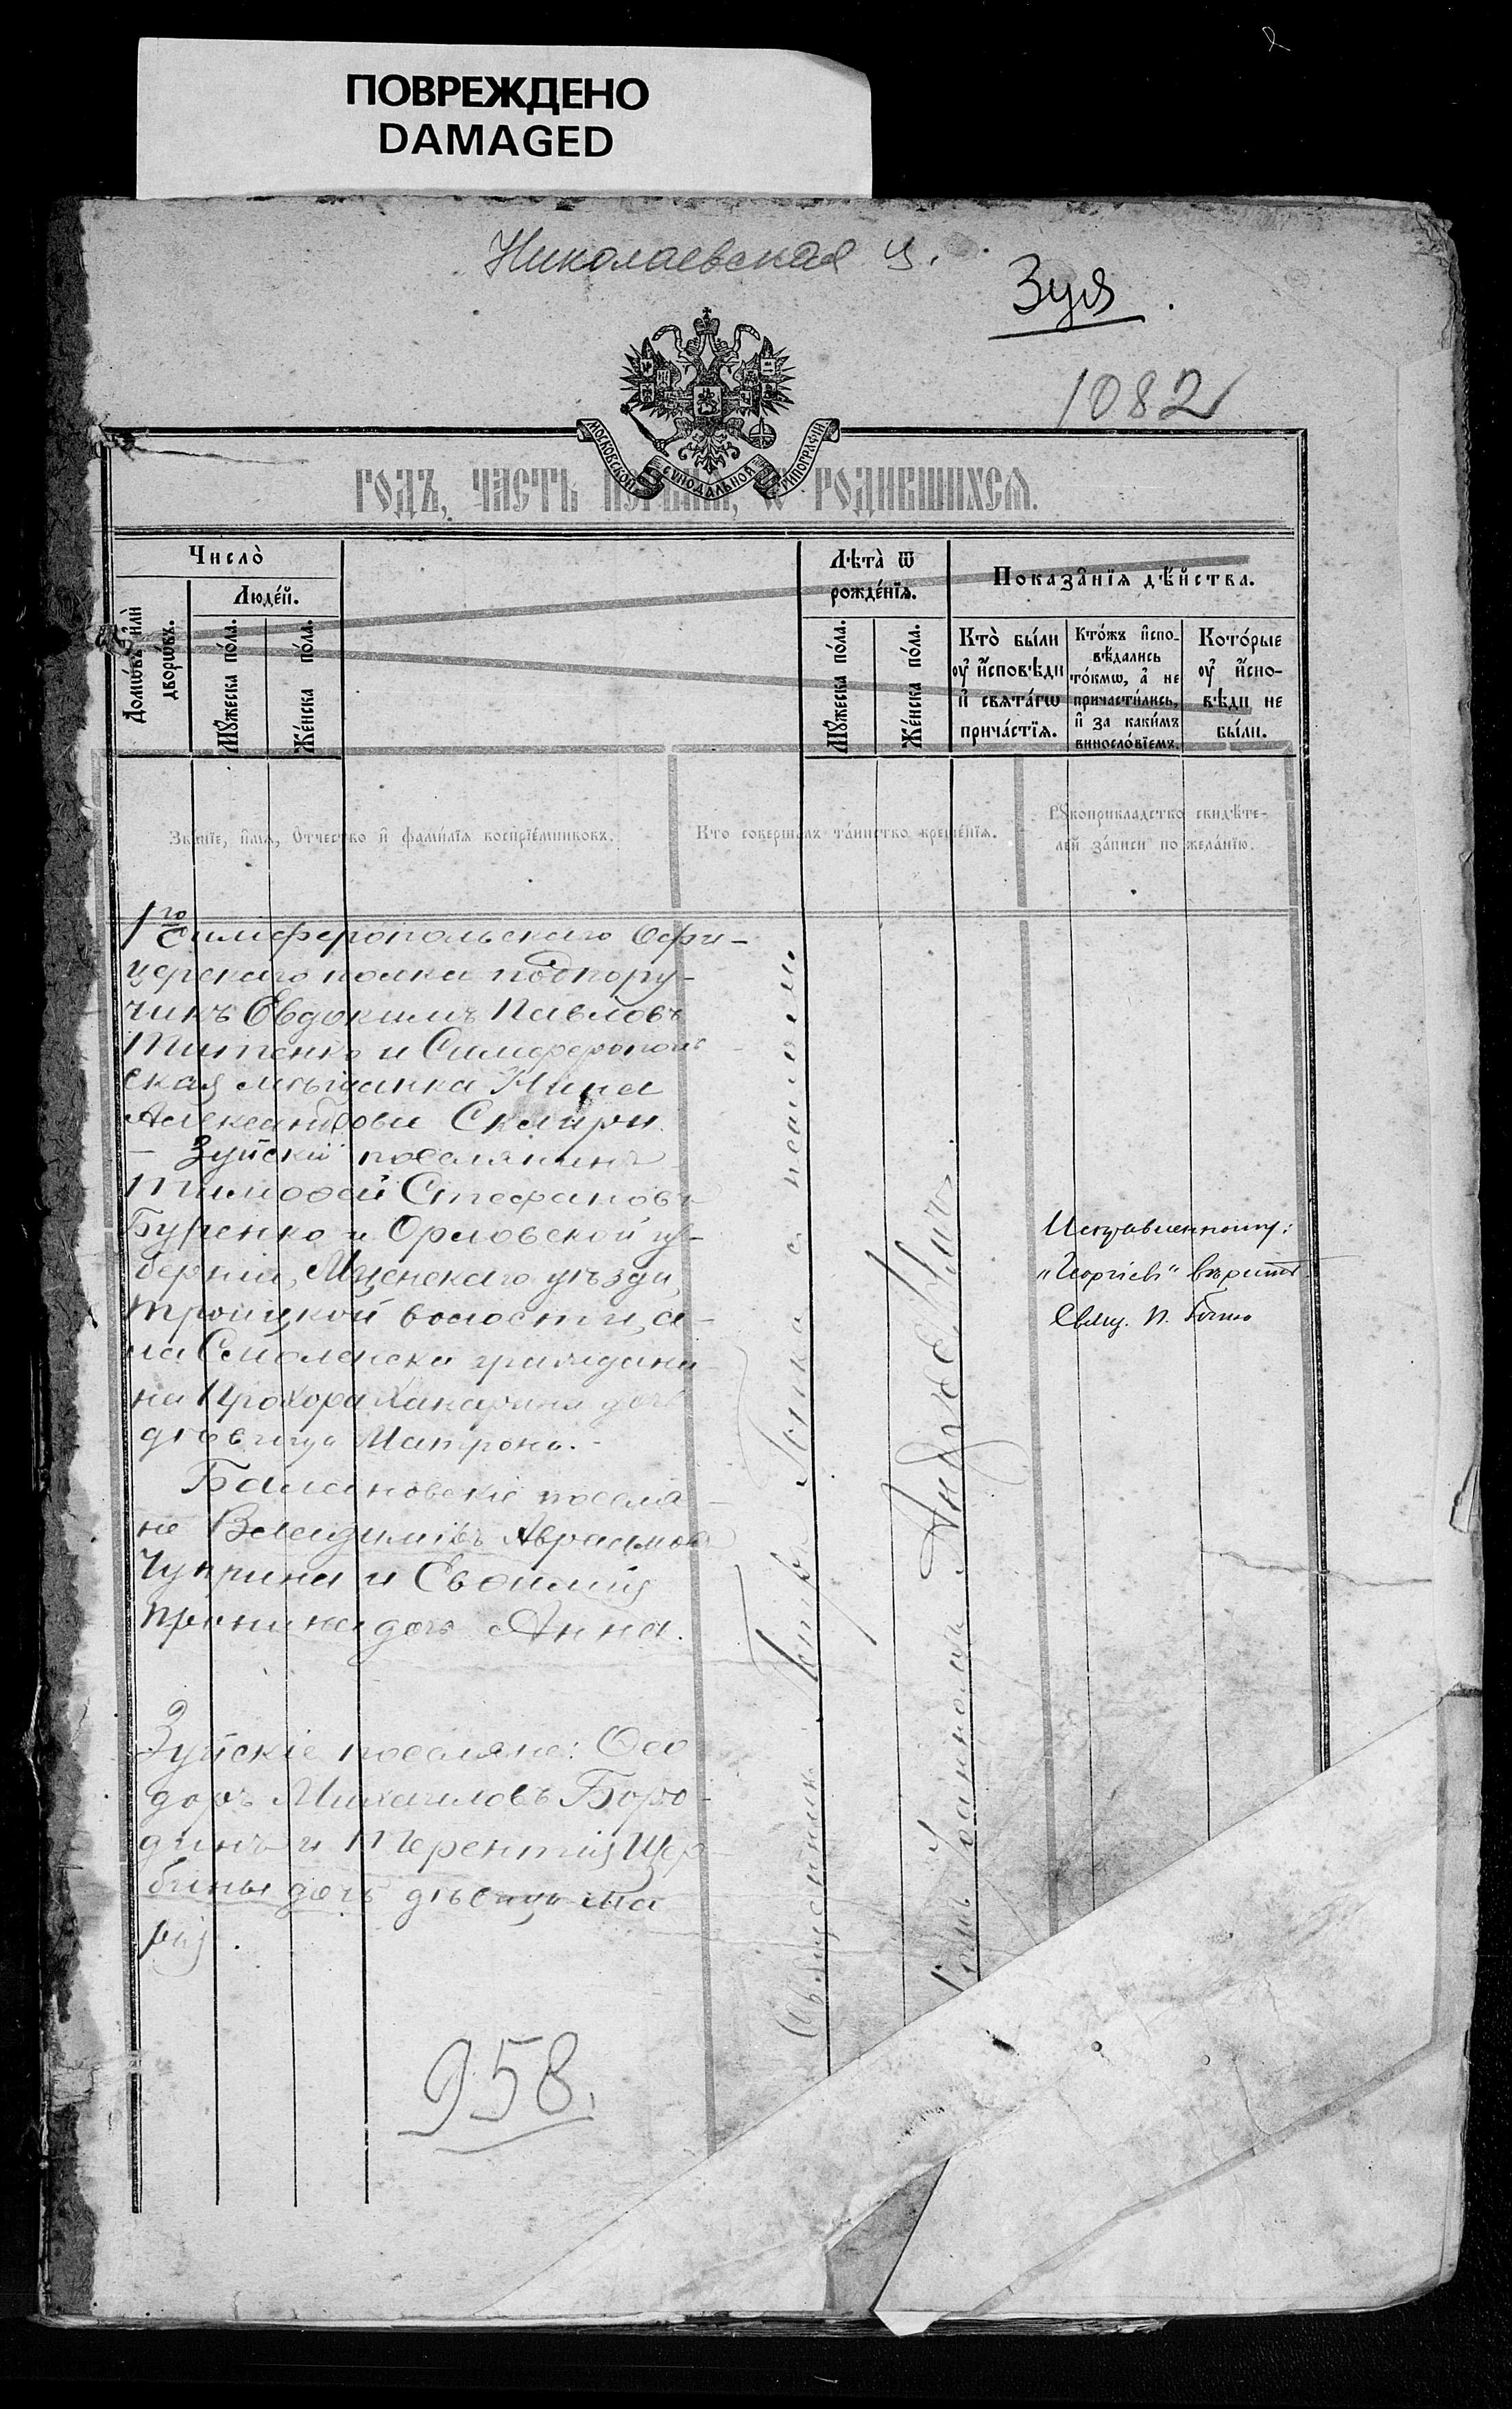 ПОВРЕЖДЕНО
DAMAGED
Николаевская ц.
Зуя
1082
МОСКОВСКОЙ СѴНОДАЛЬНОЙ ТИПОГРАФІИ
годъ, часть первая, ѡ родившихсѧ.
Число̀
Люде́й.
Домѡ́въ и҆лѝ дворѡ́въ.
Мꙋ́жеска по́ла.
Же́нска по́ла.
Лѣта̀ ѿ рожде́нїѧ.
Мꙋ́жеска по́ла.
Же́нска по́ла.
Показа̑нїѧ дѣ́йства.
Кто̀ бы́ли
ᲂу҆ и҆сповѣди
и҆ свѧта́гѡ
прича́стїѧ.
Кто́жъ и҆спо-
вѣ́дались
то́кмѡ, а҆ не
причасти́лись,
и҆ за каки́мъ
винослові́емъ.
Кото́рые
ᲂу҆ и҆спо-
вѣди не
бы́ли.
Зва́нїе, и҆́мѧ, о҆́тчество и҆ фами́лїѧ воспрїе́мниковъ.
Кто соверша́лъ та́инство креще́нїѧ.
Рꙋкоприкладство свидѣте-
лей за́писи по жела́нїю.
1го Симферопольскаго Офи-
церскаго полка подпору-
чикъ Евдокимъ Павловъ
Титенко и Симферополь-
ская мѣщанка Нина
Александрова Скляри
— Зуйскій поселянинъ
Тимофей Стефановъ
Буренко и Орловской гу-
берніи, Мценскаго уѣзда,
Троицкой волости, с-
ла Смоленска граждани-
на Прохора дочь
дѣвица Матрона.
Балановскіе поселя-
не Владиміръ Аврамовъ
Чуприна и Евфимія
Пронина дочь Анна.
Зуйскіе поселяне: Ѳео-
доръ Михаиловъ Боро-
динъ и Терентія Щер-
бины дочь дѣвица Ма-
рія.
958.
Священникъ Петръ
съ псаломщ
Іоанномъ
Исправленному:
"Георгій" вѣрить
Свящ. П.